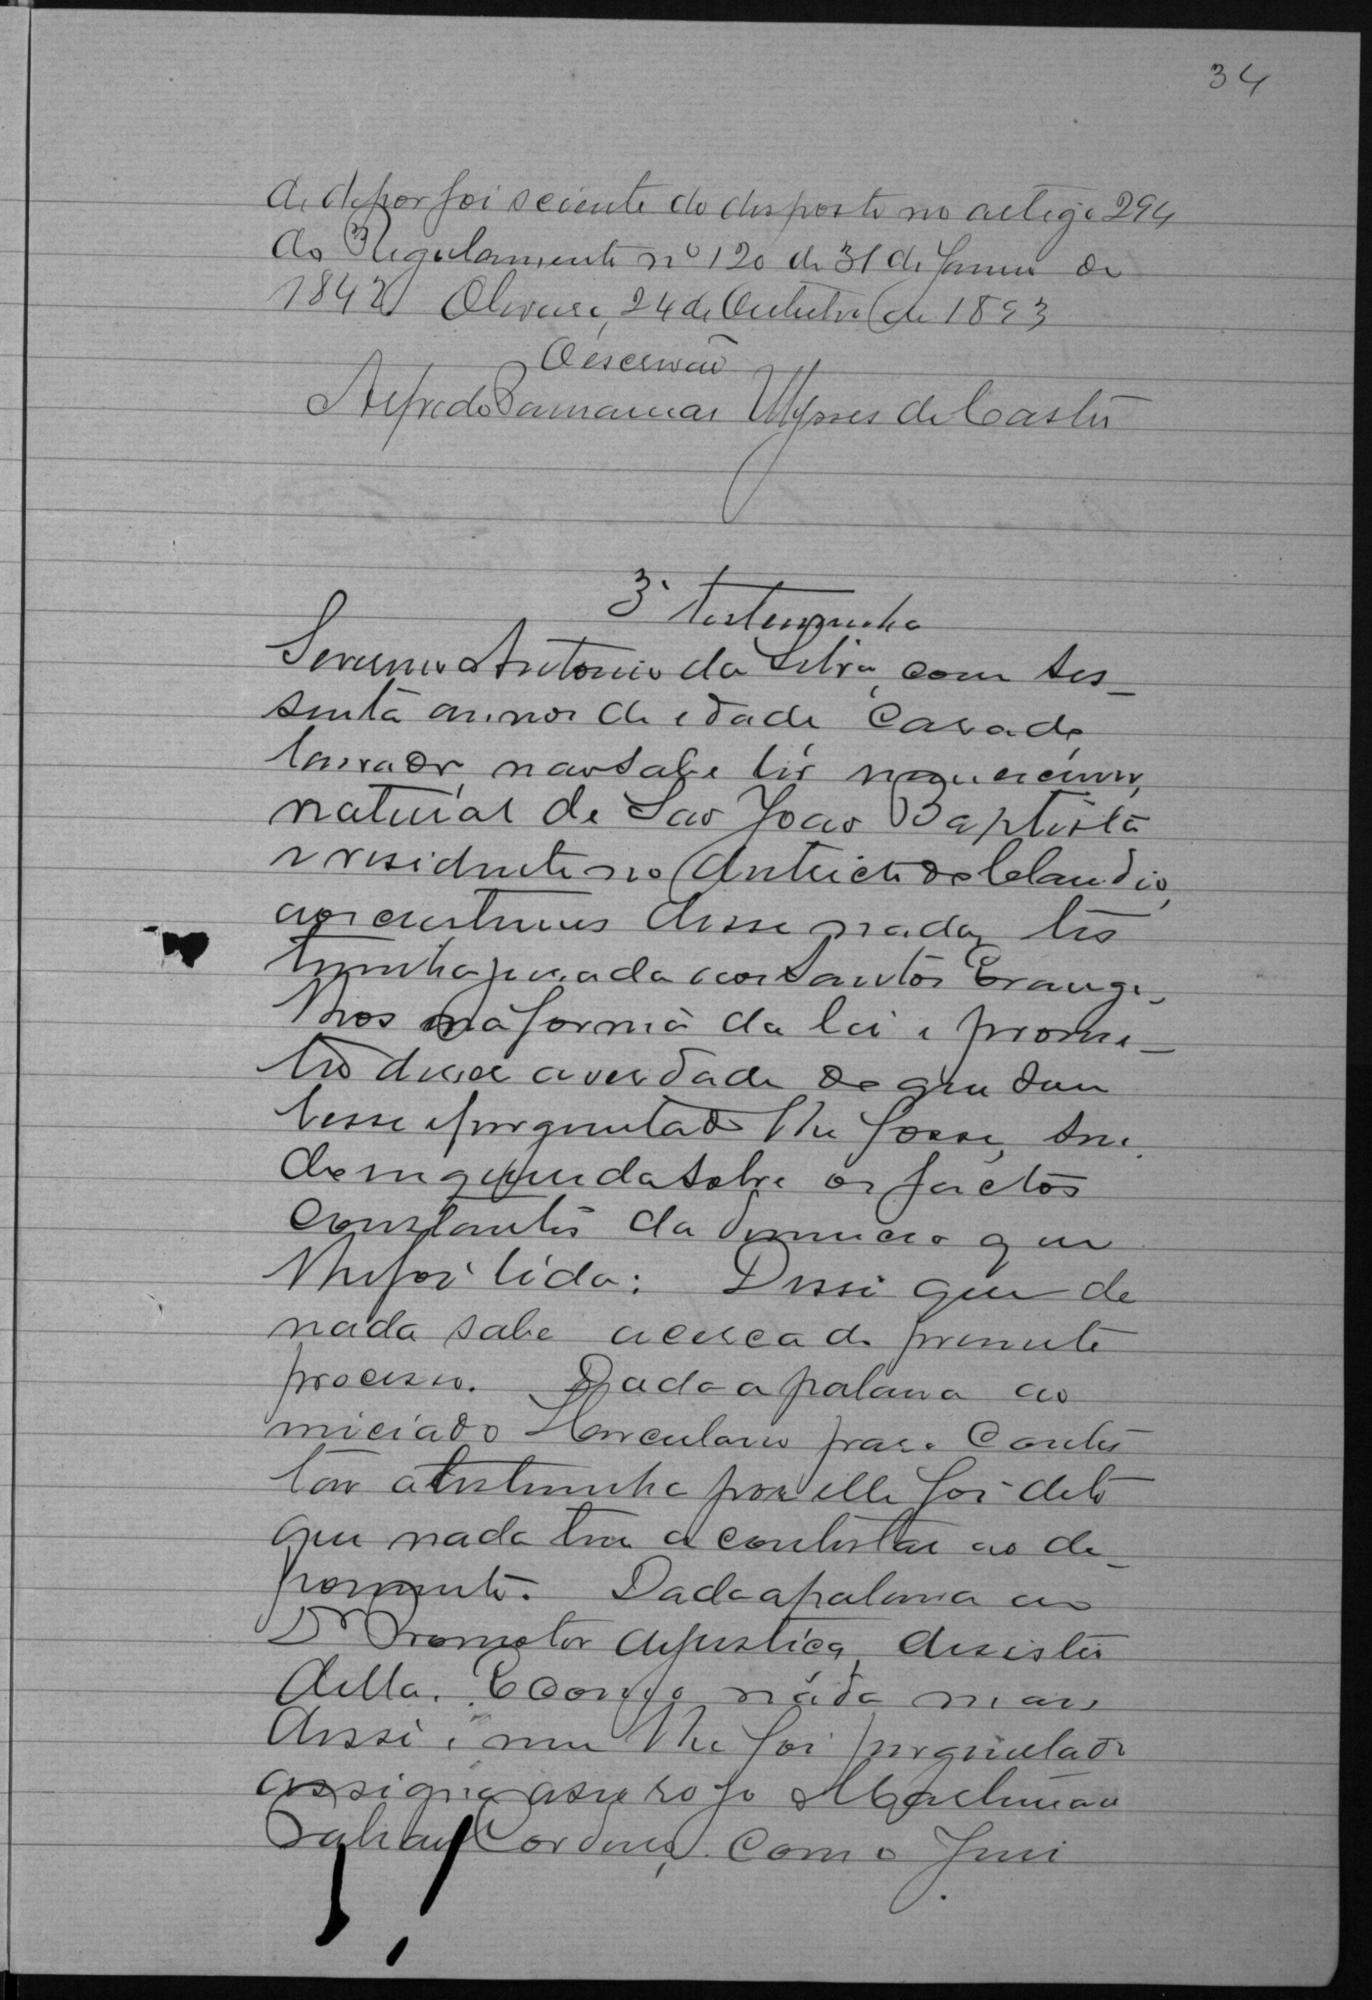 34
de depor foi sciente do disposto no artigo 294
do Regulamento nº 120 de 31 de Janeiro de
1842 Oliveira, 24 de Outubro de 1893
O escrivão
Alfredo Ulysses de Castro
3ª testemunha
Severino Antonio da Silva, com ses-
senta annos de idade casado,
lavrador, não sabe lêr nem escrever,
natural de São João Baptista
e residente no districto do Claudio,
aos costumes disse nada, tes
temunha jurada aos Santos Evange-
lhos na forma da lei e prome-
tteo diser a verdade do que sou
besse e perguntado lhe fosse, sen
do inquerida sobre os factos
constantes da denuncia que
lhe foi lida: Disse que de
nada sabe acerca do presente
processo. Dada a palavra ao
niciado Herculano para contes
tar a testemunha por elle foi dito
que nada tem a contestar ao de-
poimento. Dada a palavra ao
Dr Promotor da Justiça, desistio
della. E como nada mais
disse e nem lhe foi perguntado
assigna a seu rogo
Cordeiro, com o Juiz